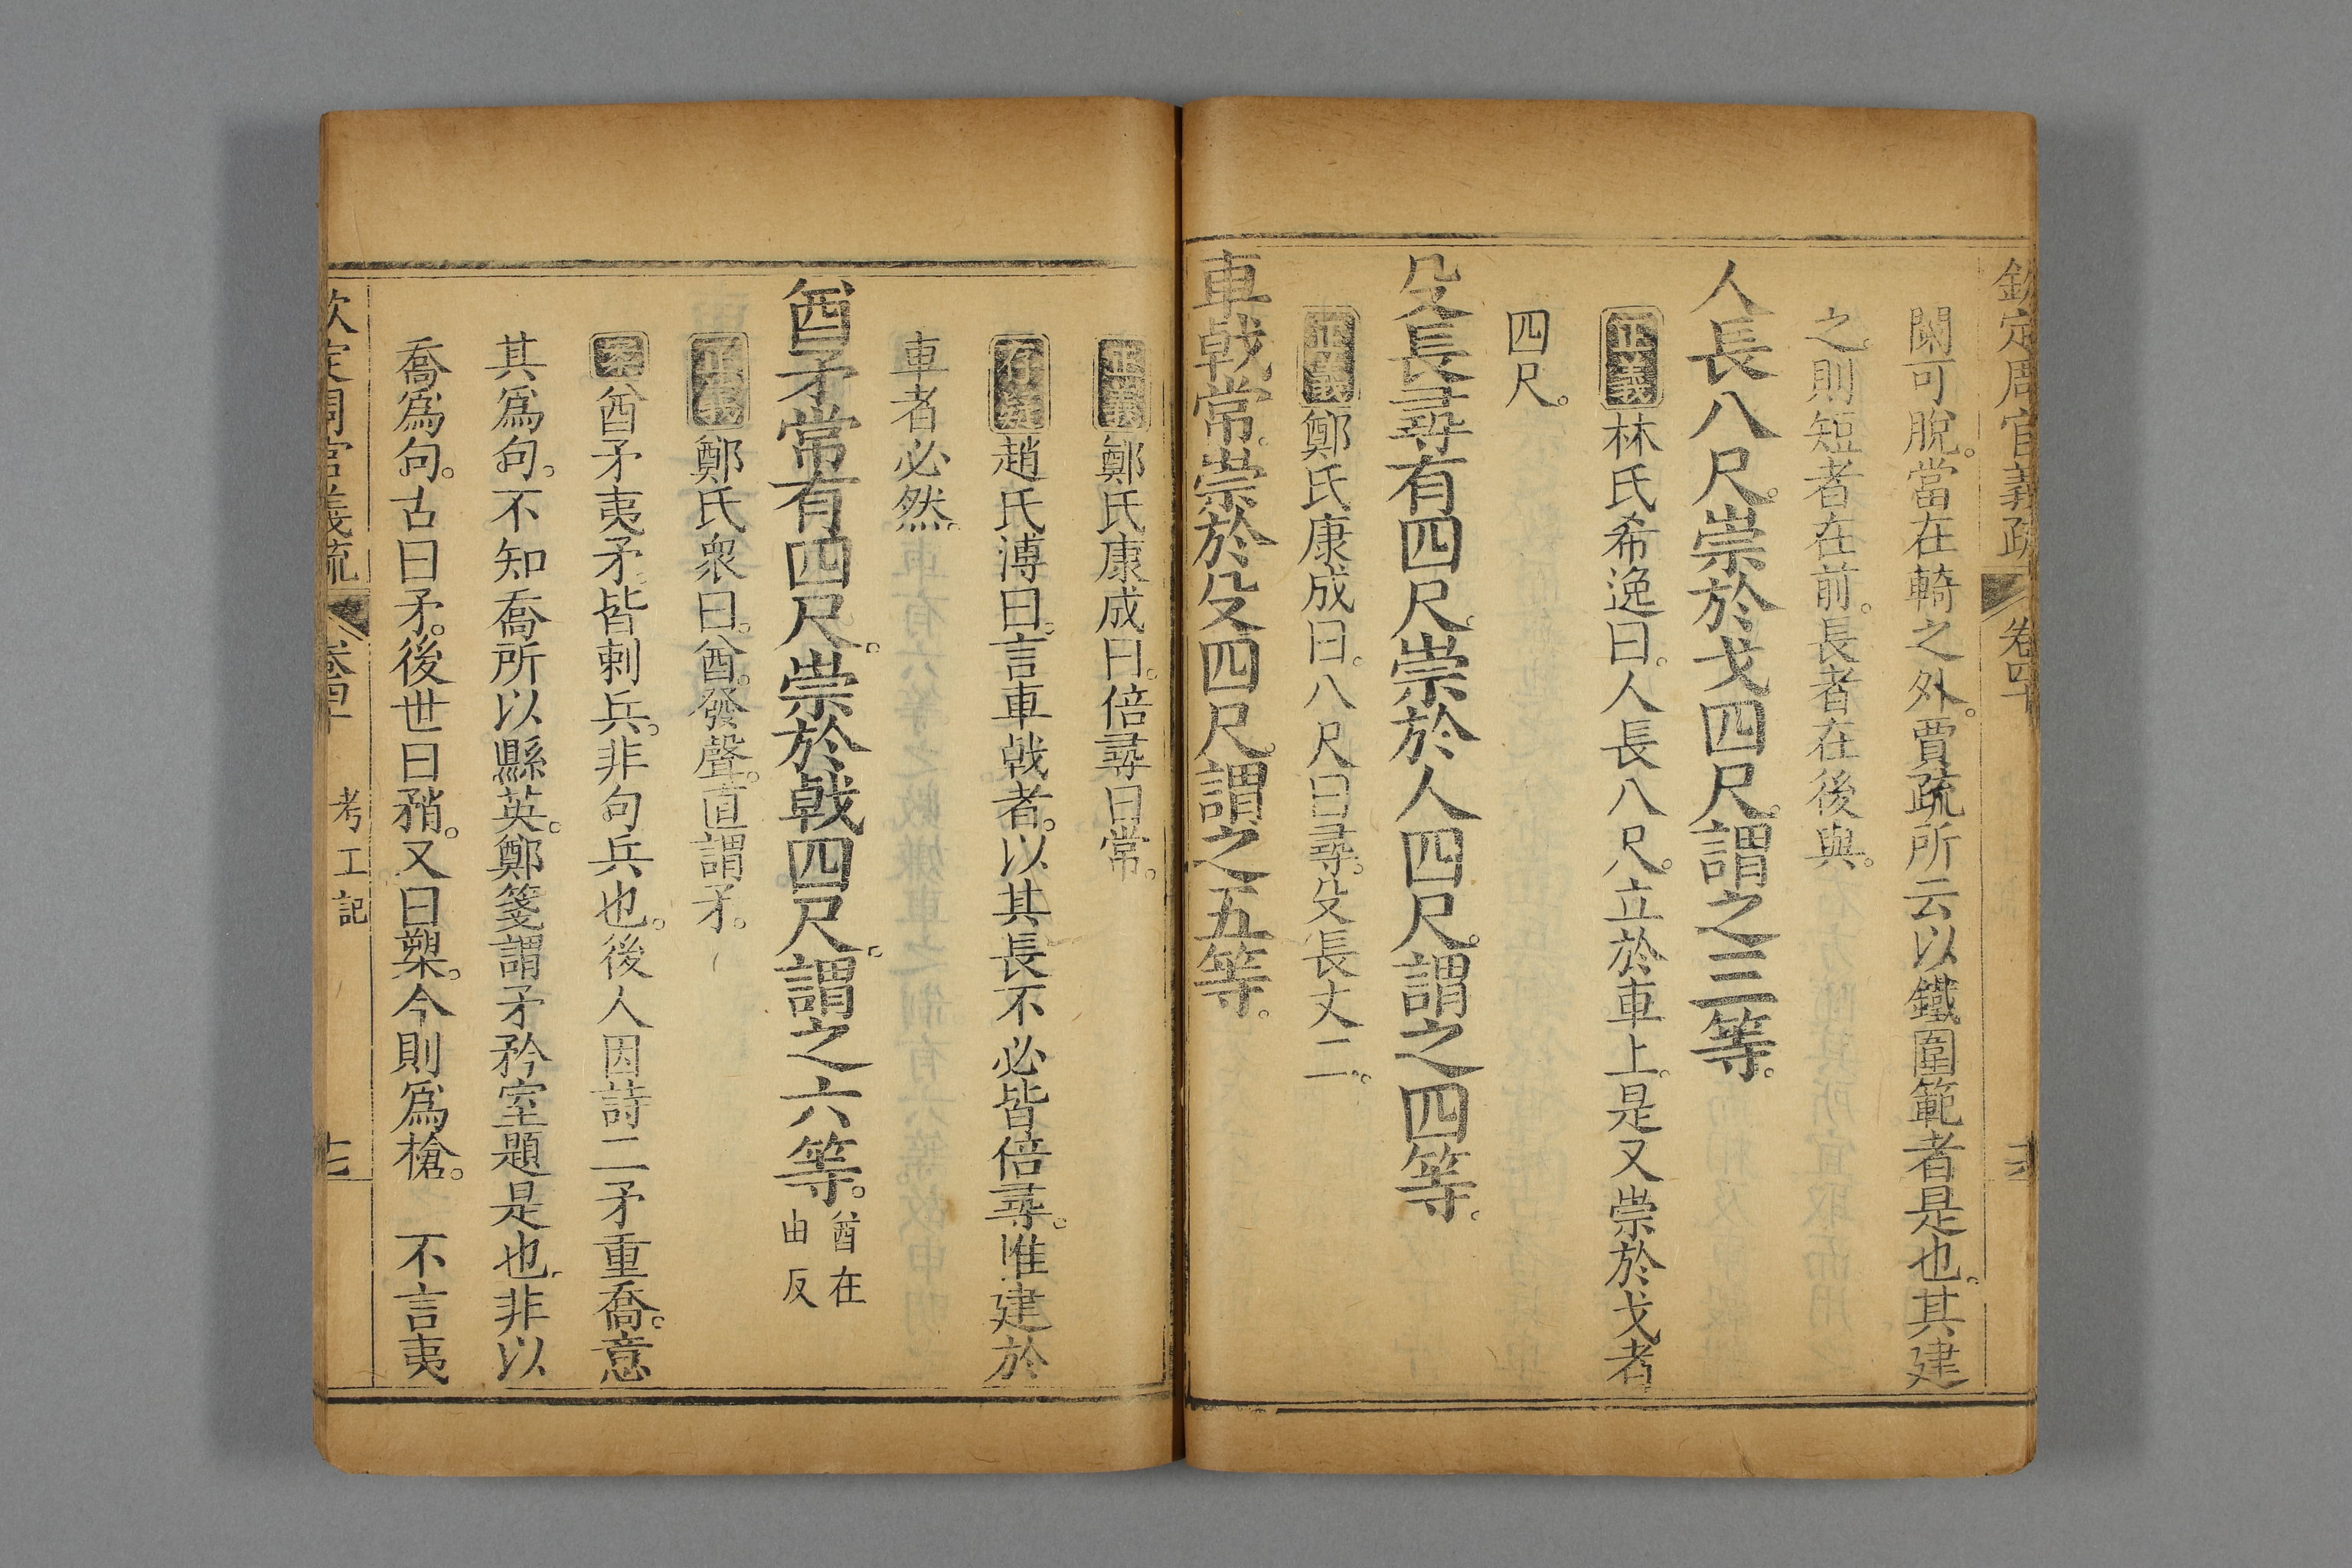 欽定周官義疏 卷四十
闌可脫。當在輢之外。賈疏所云以鐵圍範者是也。其建
之。則短者在前。長者在後與。
人長八尺。崇於戈四尺。謂之三等。
正義林氏希逸曰。人長八尺。立於車上。是又崇於戈者
四尺。
殳長尋有四尺。崇於人四尺。謂之四等。
正義鄭氏康成曰。八尺曰尋。殳長丈二。
車戟常。崇於殳四尺。謂之五等。
正義鄭氏康成曰。倍尋曰常。
存疑趙氏溥曰。言車戟者。以其長不必皆倍尋。惟建於
車者必然。
酋矛常有四尺。崇於戟四尺。謂之六等。酋在由反
正義鄭氏衆曰。酋。發聲。直謂矛。
案酋矛夷矛。皆刺兵。非句兵也。後人因詩二矛重喬。意
其爲句。不知喬所以縣英。鄭箋謂矛矜室題是也。非以
喬爲句。古曰矛。後世曰矟。又曰槊。今則爲槍。 不言夷
欽定周官義疏 卷四十 考工記 十七